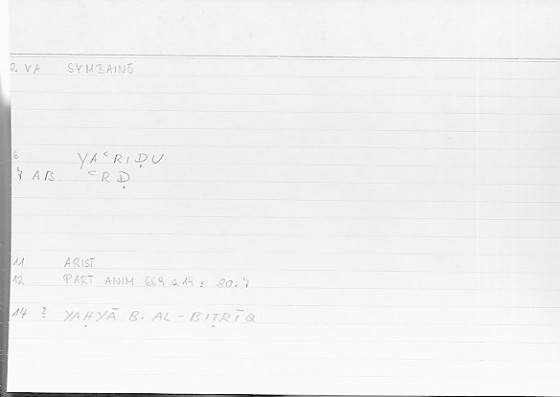 2 VA SYMBAINŌ
6 YAʿRIḌU
7 AB ʿRḌ
11 ARIST
12 PART ANIM 669 a 19 : 80.7
14 ? YAḤYĀ B. AL-BIṬRĪQ